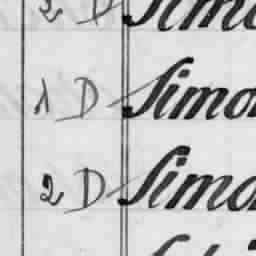 2 D Simo
1 D Simo
2 D Simo